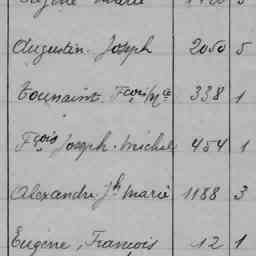 Eugène Marie
Augustin Joseph 2050 5
Toussaint Fçois Mie 338 1
Fçois Joseph Michel 454 1
Alexandre Jh Marie 1188 3
Eugène, François 12 1